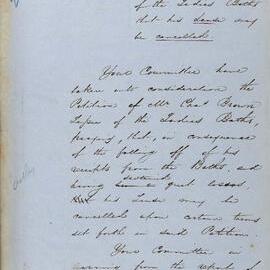 of the Ladies Baths
that his Lease may
be cancelled.
Your Committee have
taken into consideration the
Petition of Mr Chas Brown
Lessee of the Ladies Baths,
praying, that, in consequence
of the falling off of his
receipts from the Baths, and
having sustained great losses,
his Lease may be
cancelled upon certain terms
set forth in said Petition.
Your Committee in
from the report of